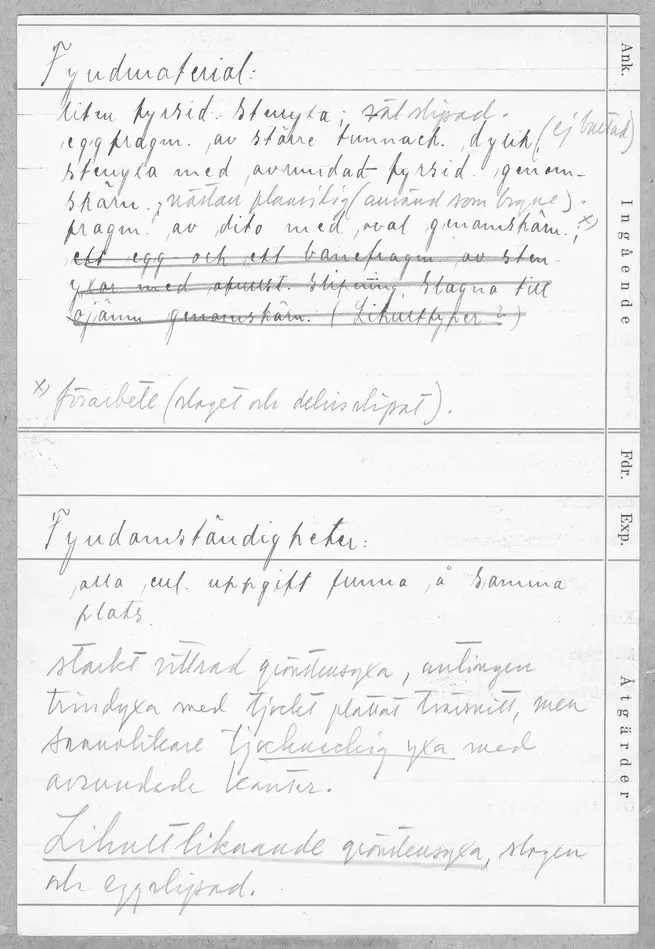 Ank.
Fyndmaterial:
liten fyrsid. stenyxa; välslipad.
eggfragm. av större tunnack. dylik (ej bultad)
stenyxa med avrundat fyrsid. genom-
skärn., nästan plansidig (använd som bryne).
fragm. av dito med oval genomskärn.; x)
ett egg och ett banefragm. av sten-
yxor med ofullst. slipning, slagna till
ojämn genomskärn. (Lihulttyper?)
Ingående
x) förarbete (slaget och delvis slipat).
Fdr.
Exp.
Fyndomständigheter:
alla enl. uppgift funna å samma
plats.
starkt vittrad grönstensyxa, antingen
trindyxa med tjockt plattat tvärsnitt, men
sannolikare tjocknackig yxa med
avrundade kanter.
Lihultliknande grönstensyxa, slagen
och eggslipad.
Åtgärder